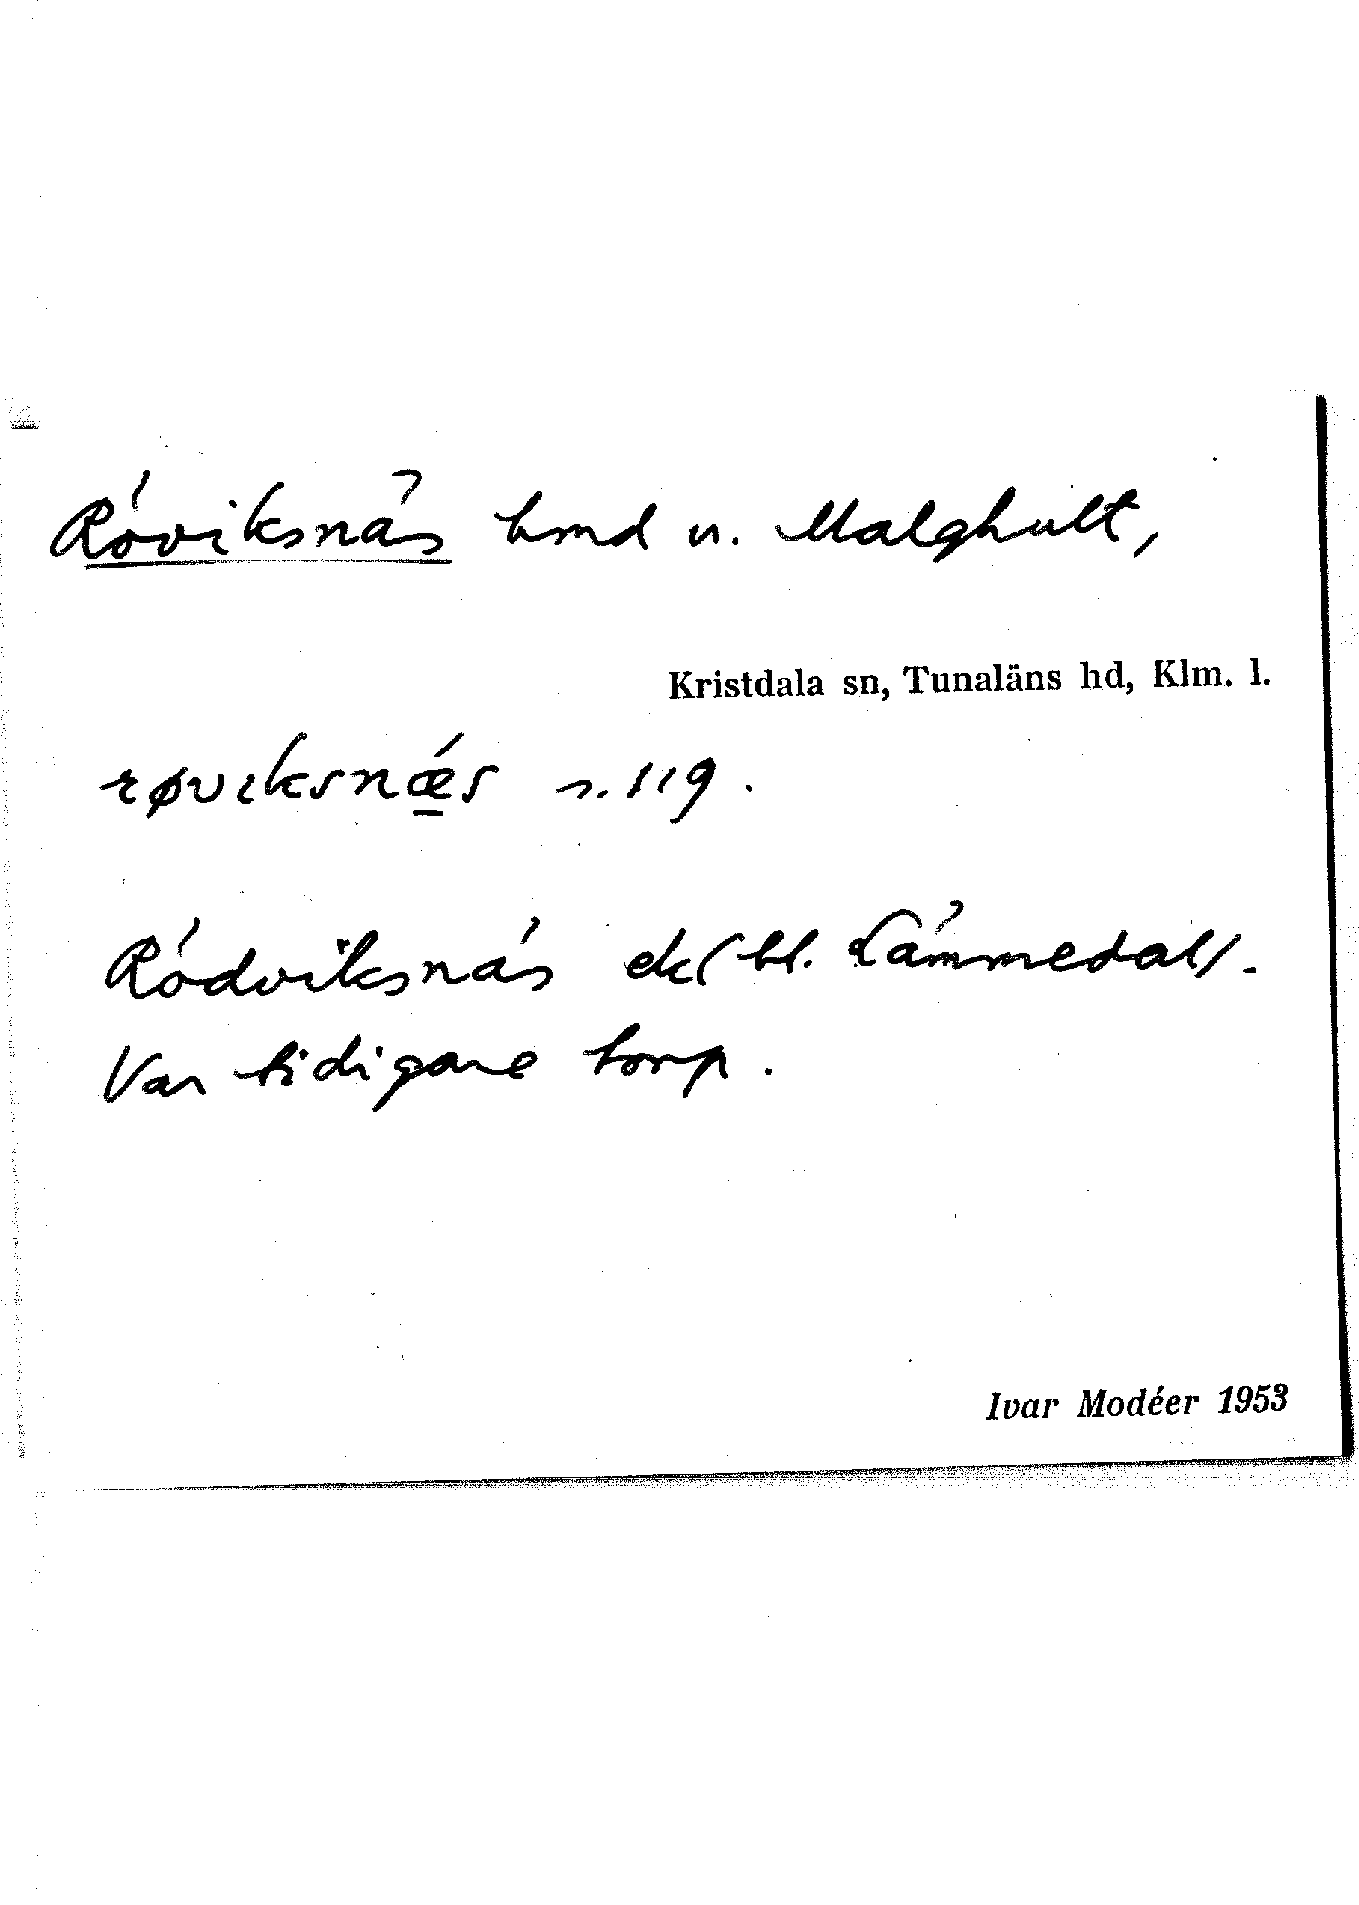 Röviksnäs hmd u. Malghult,
Kristdala sn, Tunaläns hd, Klm. l.
røviksnǽs s. 119.
Rödviksnäs ek (bl. Lämmedal).
Var tidigare torp.
Ivar Modéer 1953